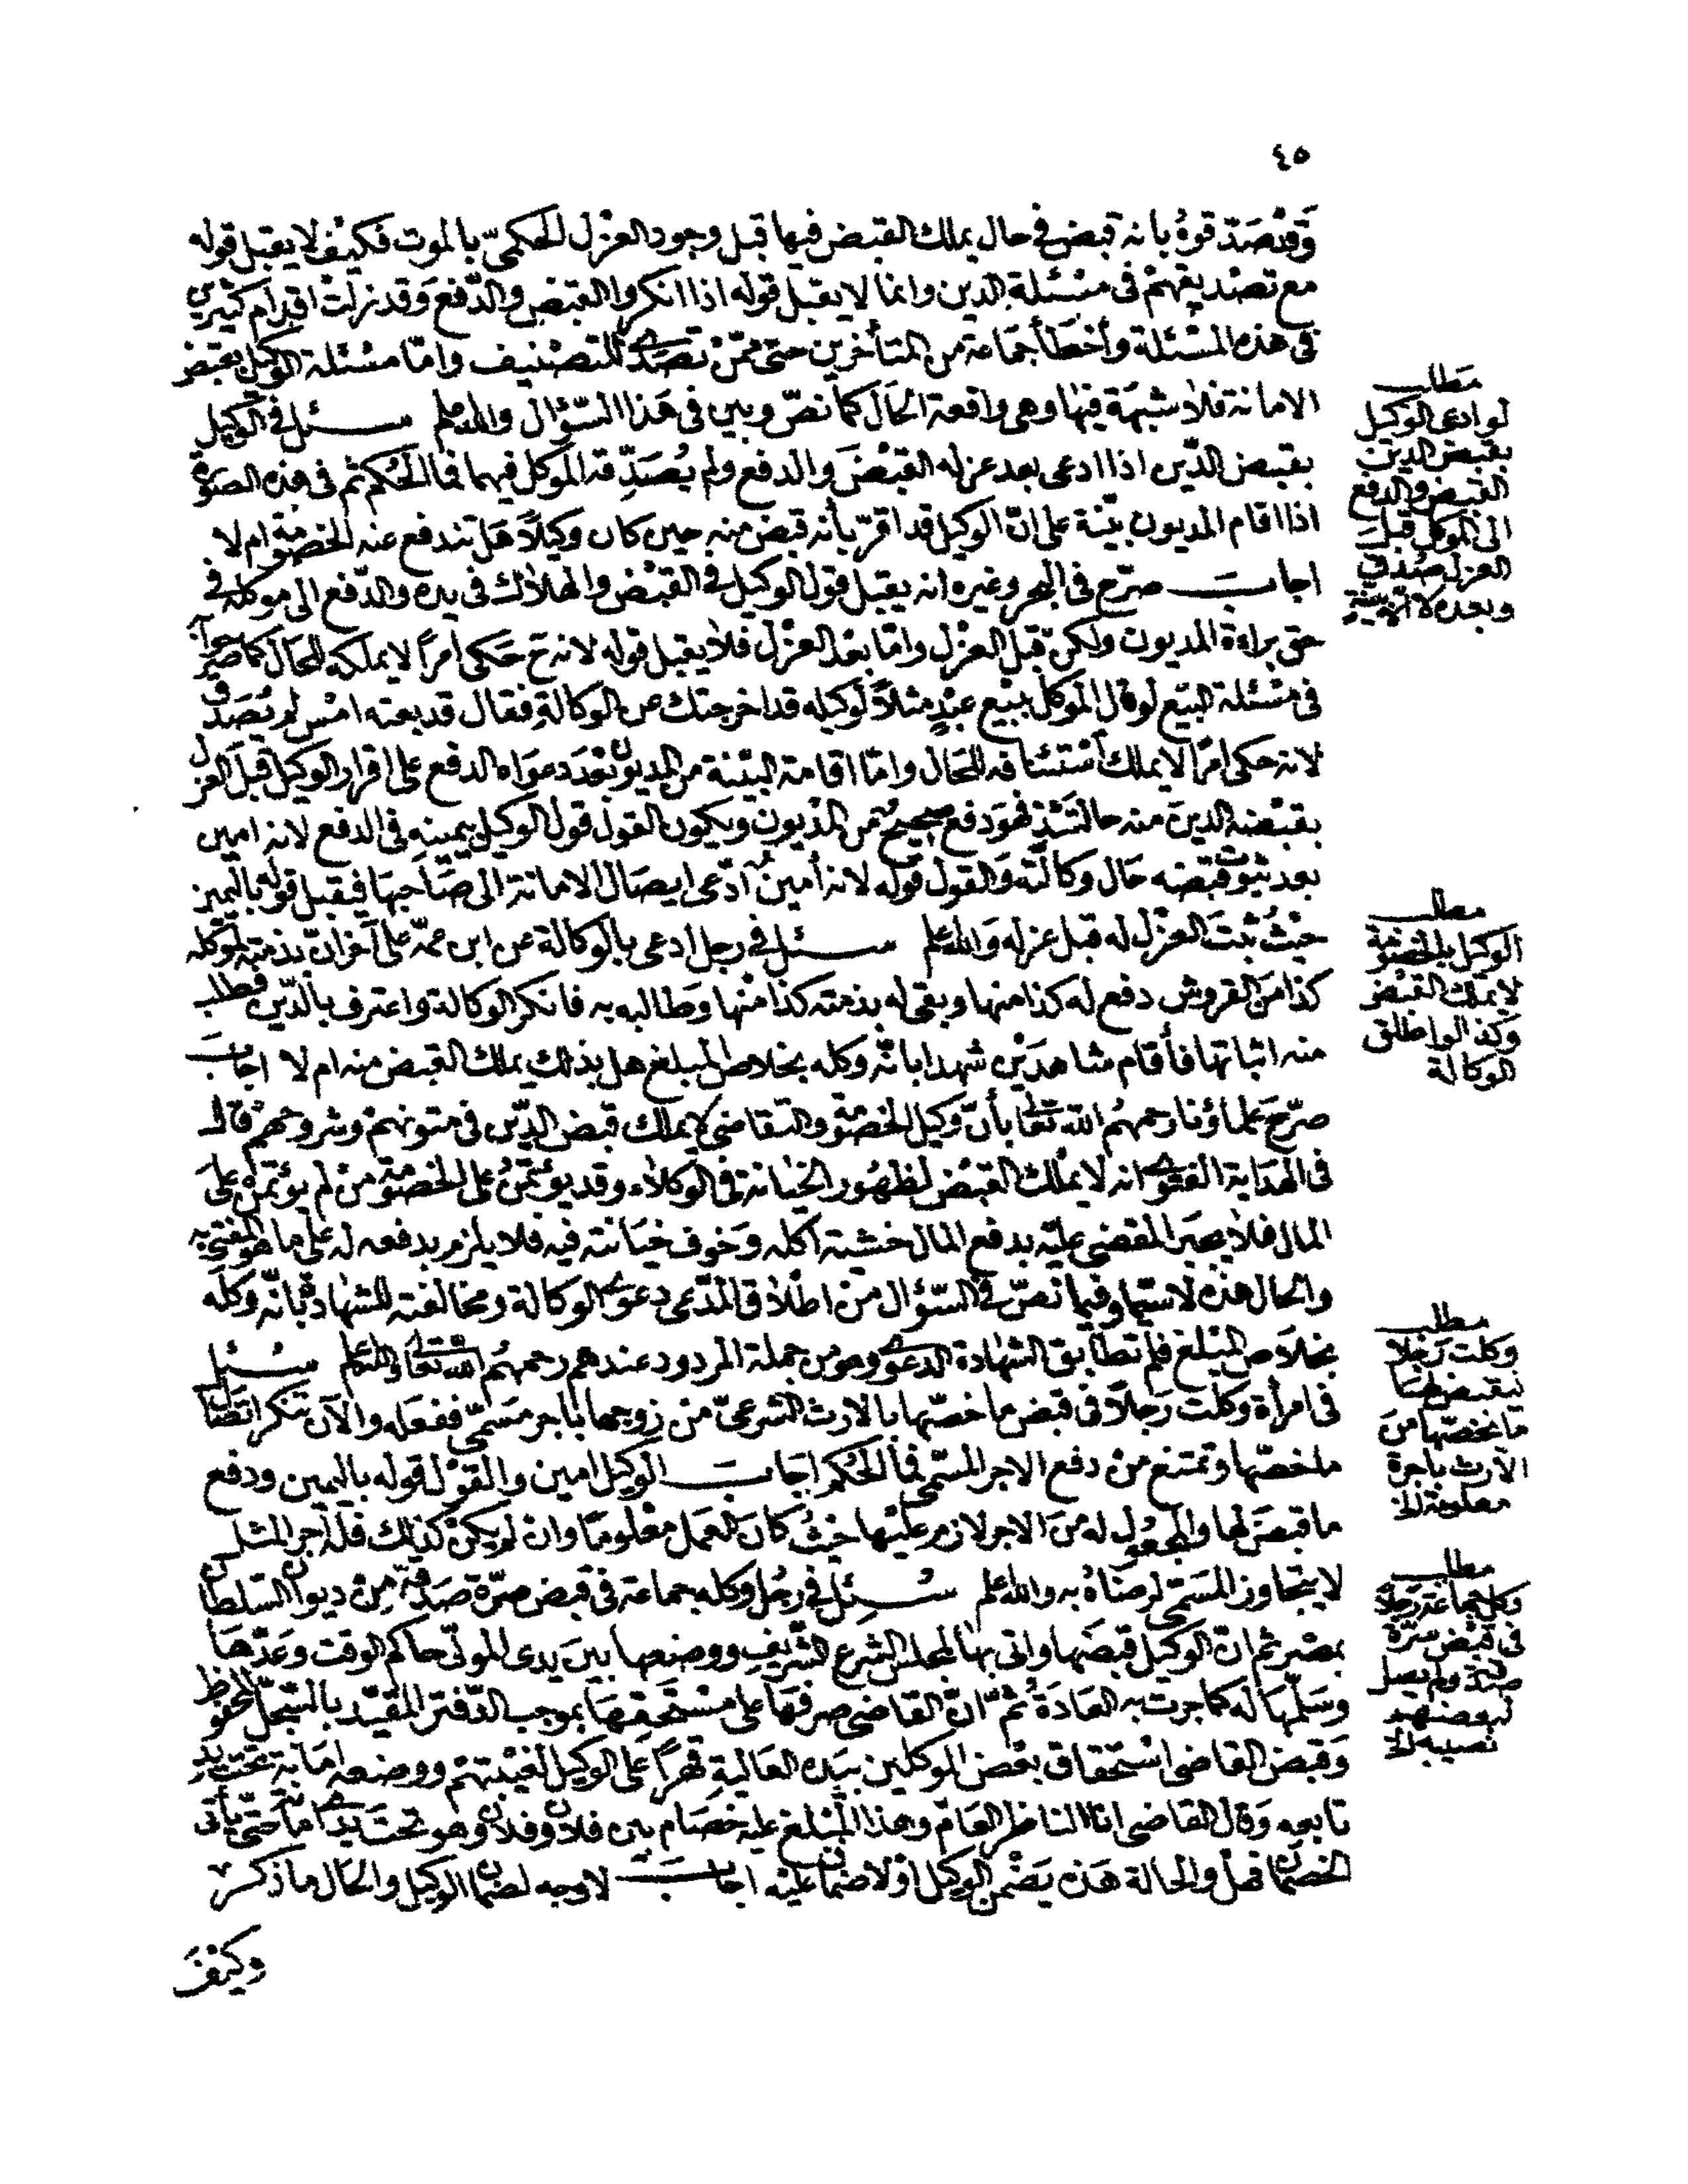 ٤٥
وقد صدقوه بانه قبض في حال يملك القبض فيها قبل وجود العزل الحكمي بالموت فكيف لا يقبل قوله
مع تصديقهم فى مسئلة الدين وانما لا يقبل قوله اذا انكروا القبض والدفع وقد زلت اقدام كثيرين
فى هذه المسئلة وأخطأ جماعة من المتأخرين حتى ممن تصدى للتصنيف واما مسئلة الوكيل بقبض
الامانة فلا شبهة فيها وهى واقعة الحال كما نص وبين فى هذا السؤال والله اعلم سئل في الوكيل
بقبض الدين اذا ادعى بعد عزله القبض والدفع ولم يصدقه الموكل فيهما فما الحكم ثم فى هذه الصورة
اذا اقام المديون بينة على ان الوكيل قد اقر بأنه قبض منه حين كان وكيلا هل تندفع عنه الخصومة ام لا
اجاب صرح فى البحر وغيره انه يقبل قول الوكيل في القبض والهلاك فى يده والدفع الى موكله في
حق براءة المديون ولكن قبل العزل واما بعد العزل فلا يقبل قوله لانه ح حكى امرا لا يملكه للحال كما صرحوا
فى مسئلة البيع لو قال الموكل ببيع عبد مثلا لوكيله قد اخرجتك عن الوكالة فقال قد بعته امس لم يصدق
لانه حكى امرا لا يملك استئنافه للحال واما اقامة البينة من المديون بعد دعواه الدفع على اقرار الوكيل قبل العزل
بقبضه الدين منه حالتئذ فهو دفع صحيح من المديون ويكون القول قول الوكيل بيمينه فى الدفع لانه امين
بعد ثبوت قبضه حال وكالته والقول قوله لانه أمين ادعى ايصال الامانة الى صاحبها فيقبل قوله باليمين
حيث ثبت العزل له قبل عزله والله اعلم سئل في رجل ادعى بالوكالة عن ابن عمه على آخر ان بذمته لموكله
كذا من القروش دفع له كذا منها وبقى له بذمته كذا منها وطالبه به فانكر الوكالة واعترف بالدين فطلب
منه اثباتها فأقام شاهدين شهدا بانه وكله بخلاص المبلغ هل بذلك يملك القبض منه ام لا اجاب
صرح علماؤنا رحمهم الله تعالى بأن وكيل الخصومة والتقاضى لا يملك قبض الدين فى متونهم وشروحهم قال
فى الهداية الفتوى انه لا يملك القبض لظهور الخيانة فى الوكلاء وقد يؤتمن على الخصومة من لم يؤتمن على
المال فلا يجبر المقضى عليه بدفع المال خشية اكله وخوف خيانته فيه فلا يلزم بدفعه له على ما هو المفتى به
والحال هذه لا سيما وفيما نص في السؤال من اطلاق المدعى دعوى الوكالة ومخالفته للشهادة بأنه وكله
بخلاص المبلغ فلم تطابق الشهادة الدعوى وهو من جملة المردود عندهم رحمهم الله تعالى والله اعلم سئل
فى امرأة وكلت رجلا فى قبض ما خصها بالارث الشرعي من زوجها باجر مسمى ففعله والآن تنكر اتصال
ما خصها وتمتنع من دفع الاجر المسمى فما الحكم اجاب الوكيل امين والقول قوله باليمين ودفع
ما قبض لها والمجعول له من الاجر لازم عليها حيث كان العمل معلوما وان لم يكن كذلك فله اجر المثل
لا يتجاوز المسمى لرضاه به والله اعلم سئل في رجل وكله جماعة فى قبض صرة صدقة من ديوان السلطان
بمصر ثم ان الوكيل قبضها واتى بها لمجلس الشرع الشريف ووضعها بين يدى المولى حاكم الوقت وعدها
وسلمها له كما جرت به العادة ثم ان القاضى صرفها على مستحقيها بموجب الدفتر المقيد بالسجل المحفوظ
وقبض القاضى استحقاق بعض الموكلين بيده العالية قهرا على الوكيل لغيبتهم ووضعه امانة تحت يد
تابعه وقال القاضى انا الناظر العام وهذا المبلغ عليه خصام بين فلان وفلان وهو تحت يدى امانة حتى يأتى
الخصمان فهل والحالة هذه يضمن الوكيل اولا ضمان عليه اجاب لا وجه لضمان الوكيل والحال ما ذكر
وكيف
مطلب
لو ادعى الوكيل
بقبض الدين
القبض والدفع
الى الموكل قبل
العزل صدق
وبعده لا الا ببينة
مطلب
الوكيل بالخصومة
لا يملك القبض
وكذا لو اطلق
الوكالة
مطلب
وكلت رجلا
ليقبض لها
ما يخصها من
الارث باجرة
معلومة الخ
مطلب
وكل جماعة رجلا
فى قبض صرة
صدقة ولم يصل
لبعضهم
نصيبه الخ